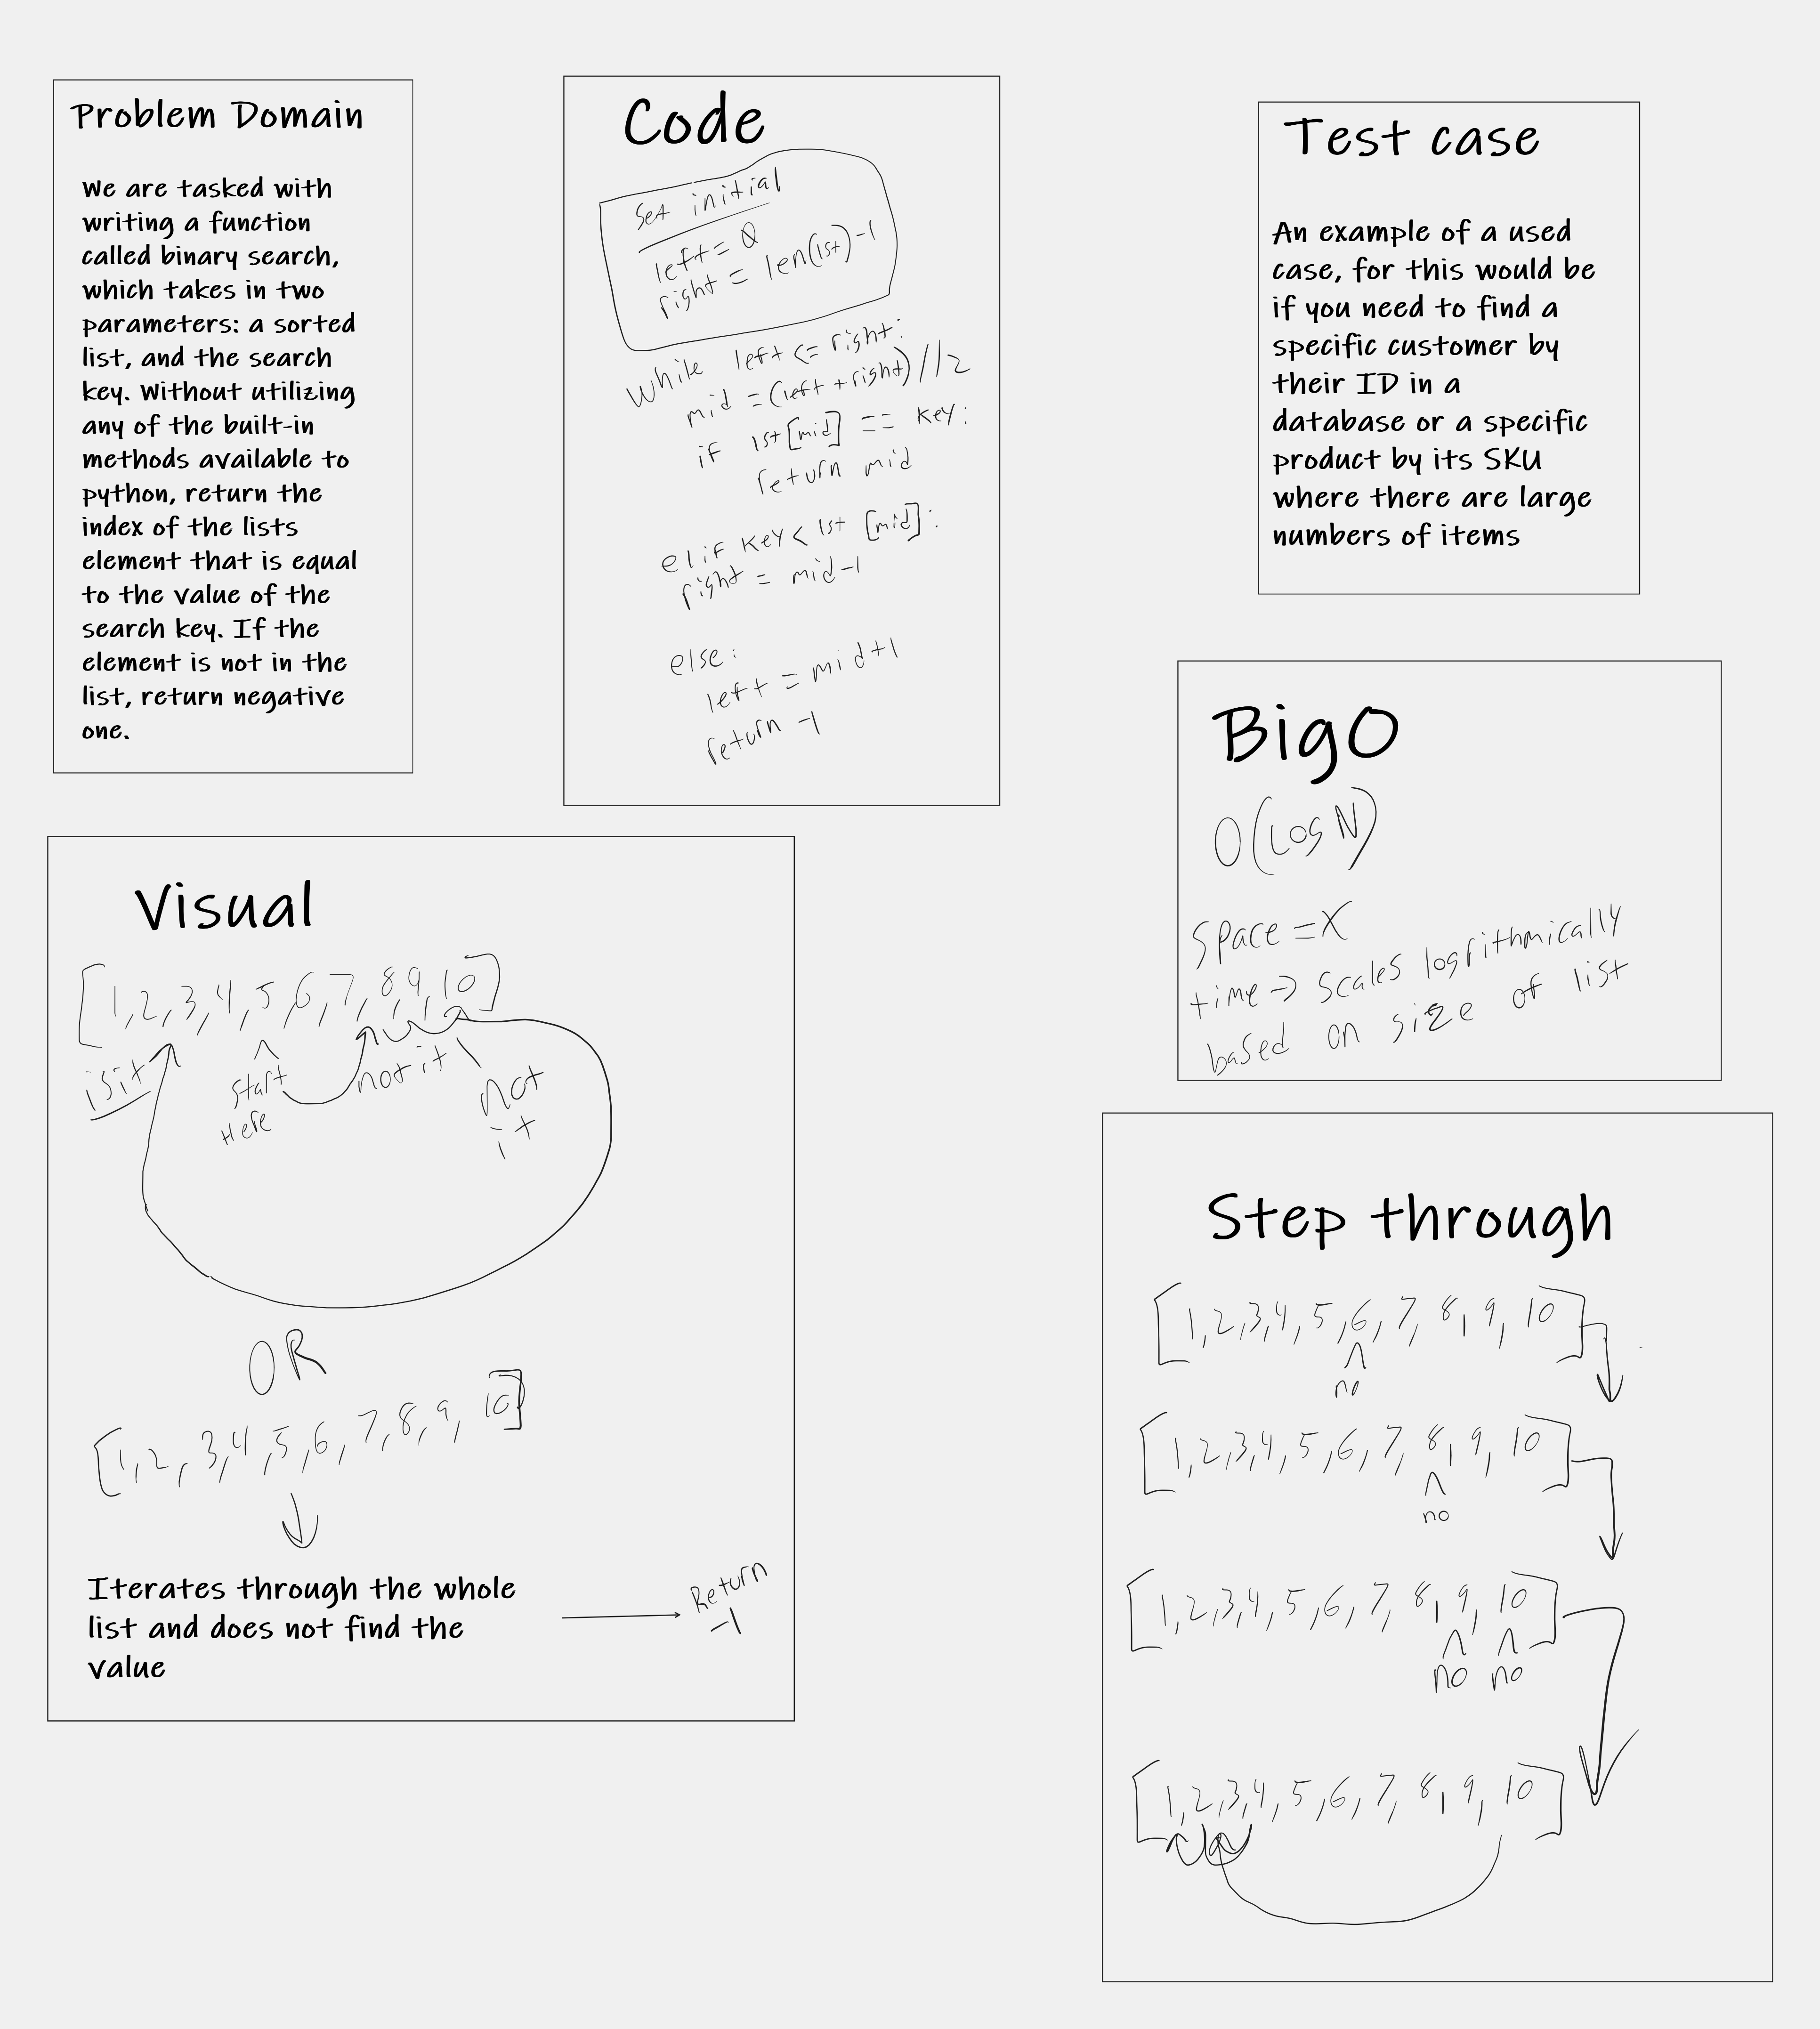 Problem Domain
We are tasked with
writing a function
called binary search,
which takes in two
parameters: a sorted
list, and the search
key. Without utilizing
any of the built-in
methods available to
python, return the
index of the lists
element that is equal
to the value of the
search key. If the
element is not in the
list, return negative
one.
Code
Set initial
left = 0
right = len(lst)-1
While left <= right:
mid = (left + right)//2
if lst[mid] == key:
return mid
elif key < lst [mid]:
right = mid-1
else:
left = mid+1
return -1
Test case
An example of a used
case, for this would be
if you need to find a
specific customer by
their ID in a
database or a specific
product by its SKU
where there are large
numbers of items
BigO
O(LOG N)
Space = X
time -> Scales logrithmically
based on size of list
Visual
[1,2,3,4,5,6,7,8,9,10]
isit
Start
Here
not it
not
it
OR
[1,2,3,4,5,6,7,8,9,10]
Iterates through the whole
list and does not find the
value
Return
-1
Step through
[1,2,3,4,5,6,7,8,9,10]
no
[1,2,3,4,5,6,7,8,9,10]
no
[1,2,3,4,5,6,7,8,9,10]
no no
[1,2,3,4,5,6,7,8,9,10]